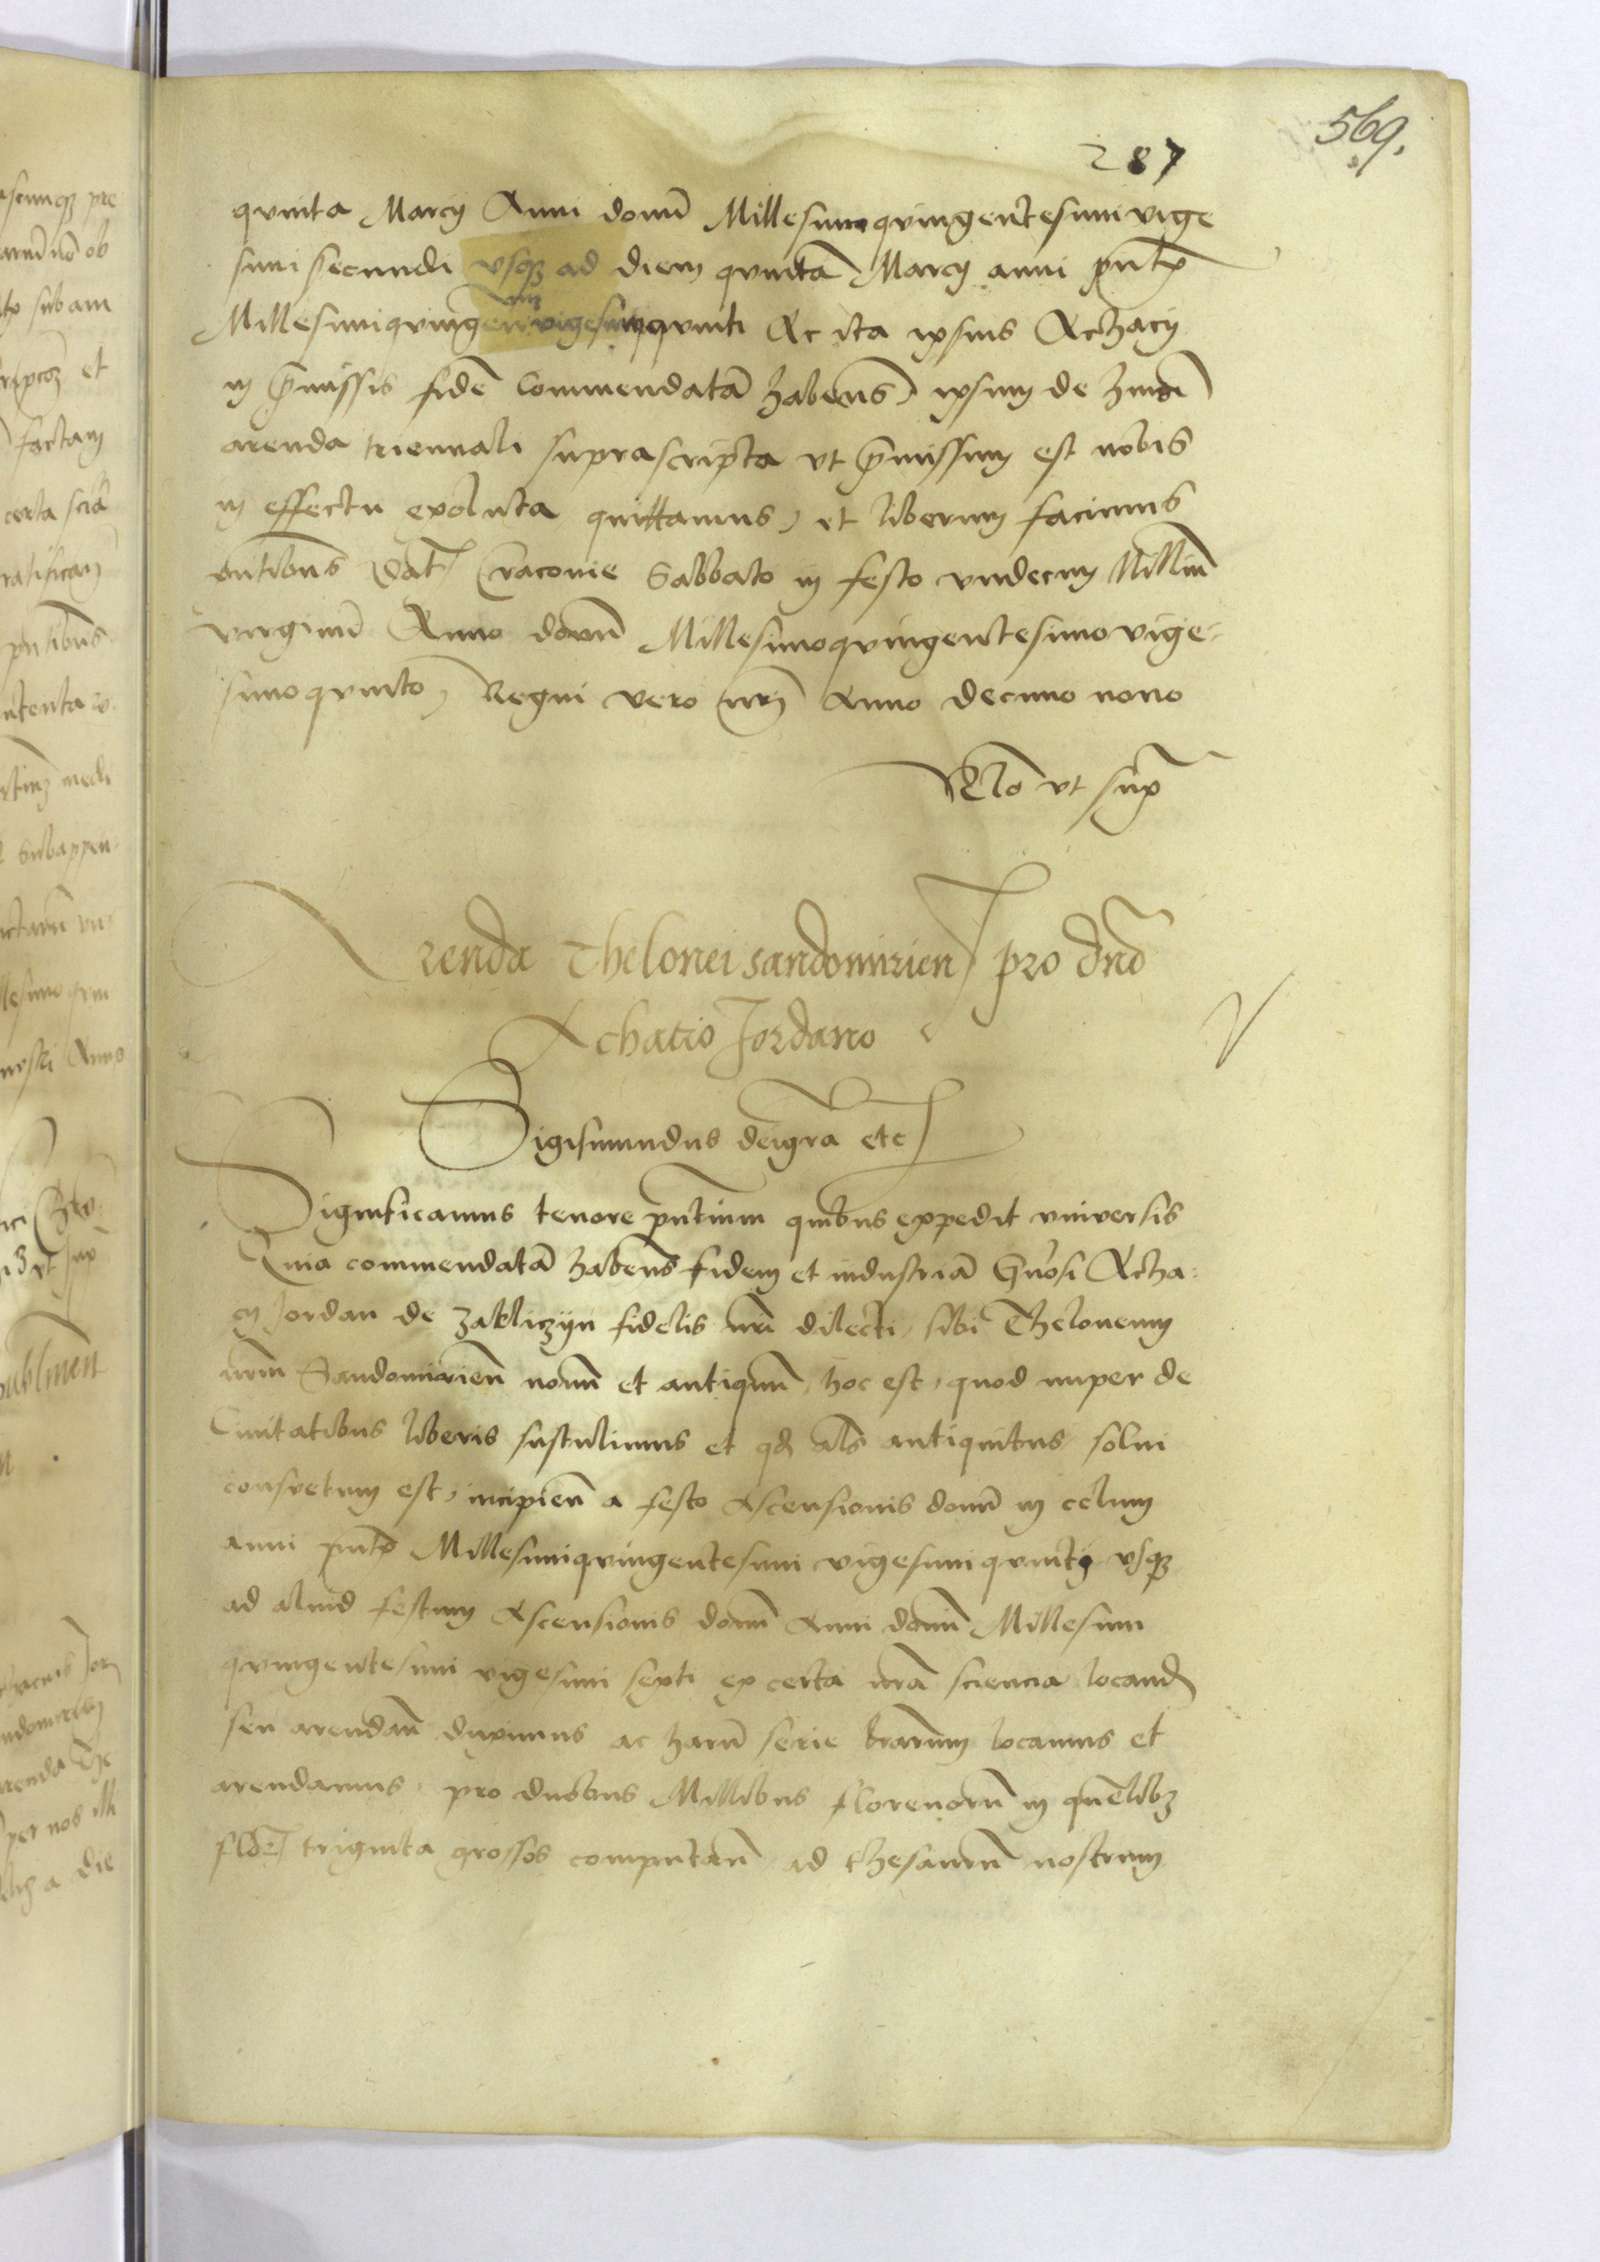 569.
287
quinta Marcij Anni domī Millesimoquingentesimi vige
simi secundi vsqʒ ad diem quītā Marcij anni pntˢ
Millesimiquingen vigesimiquinti Ac ita ipsius Achacij
in p̄missis fidē Commendatā habentes ipsum de hmoi
arenda triennali suprascripta vt p̄missum est nobis
in effectu exoluta quittamus, et liberum facimus
pntibus Dat Cracouie Sabbato in festo vndecim Milliū
virginū Anno domī Millesimoquingentesimo vige
simoquinto, Regni vero nrī Anno decimo nono
Relō vt supᵃ
Arenda Thelonei sandomirien pro dnō
Achatio Jordano
Sigismundus deigra etc
Significamus tenore pntium quibus expedit vniversis
Quia commendatā habentes fidem et industriā Gn̄osi Acha
cij Jordan de Zakliczijn fidelis nrī dilecti, sibi Theloneum
nrm̄ Sandomirien̄ nouū et antiquū, hoc est, quod nuper de
Ciuitatibus liberis sustulimus et qđ als̄ antiquitus solui
consvetum est, incipien̄ a festo Ascensionis domī in celum
anni pntˢ Millesimiquingentesimi vigesimiquinti vsqʒ
ad aliud festum Ascensionis domī Anni domī Millesimi
quingentesimi vigesimi sexti ex certa nrā sciencia locand
seu arendan̄ duximus ac harū serie lrarum locamus et
arendamus pro duobus Millibus florenorū in quēlibʒ
flor triginta grossos computan̄ ad thesaurū nostrum